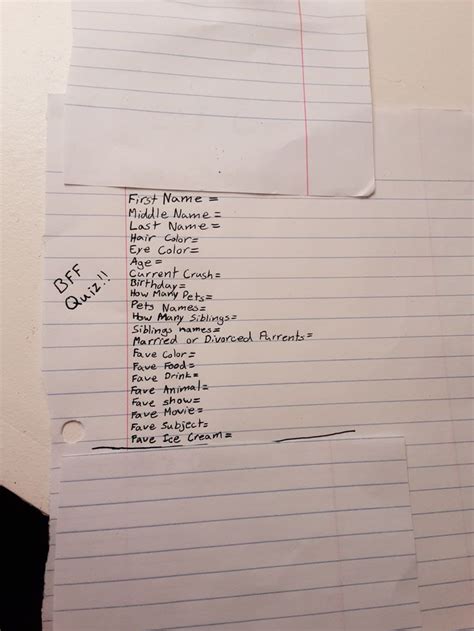 BFF
Quiz!!
First Name =
Middle Name =
Last Name =
Hair Color=
Eye Color=
Age =
Current Crush=
Birthday=
How Many Pets=
Pets Names=
How Many Siblings=
Siblings names=
Married or Divorced Parrents=
Fave Color=
Fave Food=
Fave Drink=
Fave Animal=
Fave show=
Fave Movie=
Fave Subject=
Fave Ice Cream=